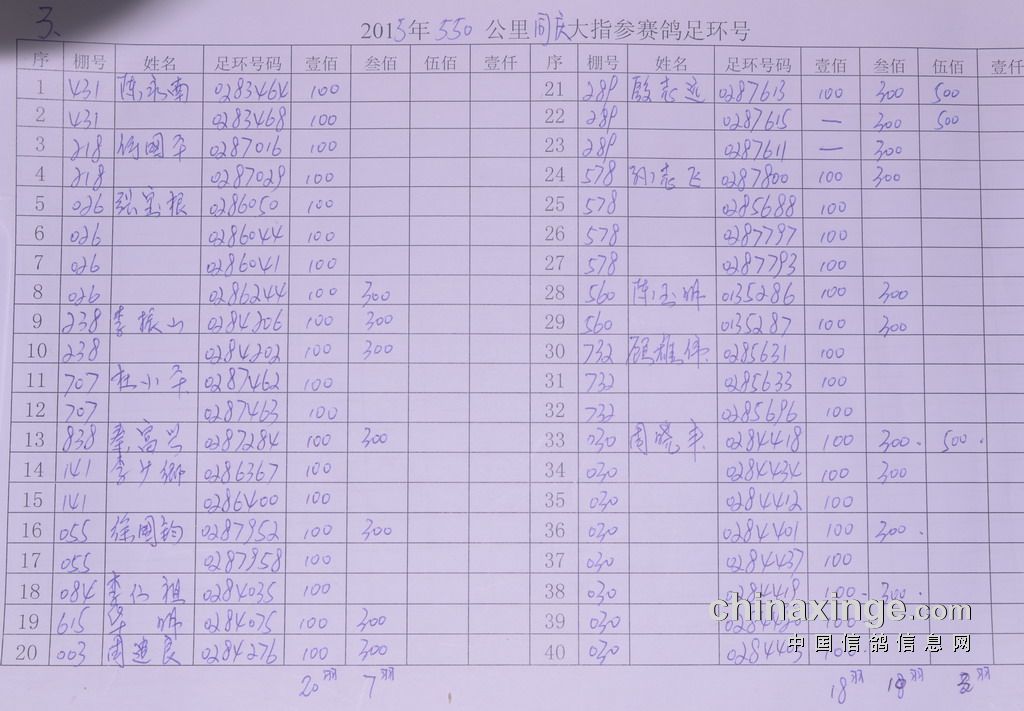 3.
2015年 550 公里同庆大指参赛鸽足环号
序 棚号 姓名 足环号码 壹佰 叁佰 伍佰 壹仟 序 棚号 姓名 足环号码 壹佰 叁佰 伍佰 壹仟
1 431 陈永南 0283464 100 21 289 殷志远 0287613 100 300 500
2 431 0283468 100 22 289 0287615 — 300 500
3 218 倪国平 0287016 100 23 289 0287611 — 300
4 218 0287029 100 24 578 孙志飞 0287800 100 300
5 026 张宝根 0286050 100 25 578 0285688 100
6 026 0286044 100 26 578 0287797 100
7 026 0286041 100 27 578 0287793 100
8 026 0286244 100 300 28 560 陈玉明 0135286 100 300
9 238 李振山 0284206 100 300 29 560 0135287 100 300
10 238 0284202 100 300 30 732 顾雄伟 0285631 100
11 707 杜小平 0287462 100 31 732 0285633 100
12 707 0287463 100 32 732 0285696 100
13 838 秦富兴 0287284 100 300 33 030 周晓东 0284418 100 300. 500.
14 141 李少卿 0286367 100 34 030 0284434 100 300
15 141 0286400 100 35 030 0284412 100
16 055 徐国钧 0287952 100 300 36 030 0284401 100 300.
17 055 0287958 100 37 030 0284437 100
18 084 李仁祖 0284035 100 38 030 0284419 100. 300.
19 615 华明 0284075 100 300 39 030 100
20 003 周建良 0284276 100 300 40 030 100
20羽 7羽 18羽 羽 羽
chinaxinge.com
中国信鸽信息网